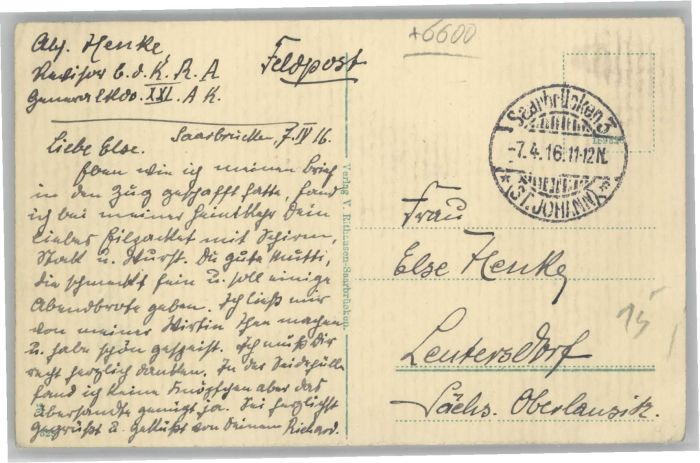 +6600
Abs. Henke,
Revisor b. d. K. R. A
Generalkdo. XXI. A.K.
Feldpost
Saarbrücken, 7.IV 16.
Liebe Else.
Eben wie ich meinen Brief
in den Zug geschafft hatte, fand
ich bei meiner Heimkehr Dein
liebes Eilpacket mit Schirm,
Stock u. Wurst. Du gute Mutti,
die schmeckt fein u. soll einige
Abendbrote geben. Ich ließ mir
von meiner Wirtin Thee machen
u. habe schön gespeist. Ich muß dir
recht herzlich danken. In der Seidehülle
fand ich keine Knöpfchen aber das
übersandte genügt ja. Sei herzlichst
gegrüßt u. geküßt von Deinem Richard.
Verlag V. -Saarbrücken.
Saarbrücken 3
-7.4.16.11-12N.
* (ST. JOHANN) *
Frau
Else Henke
Leutersdorf
Sächs. Oberlausitz.
15